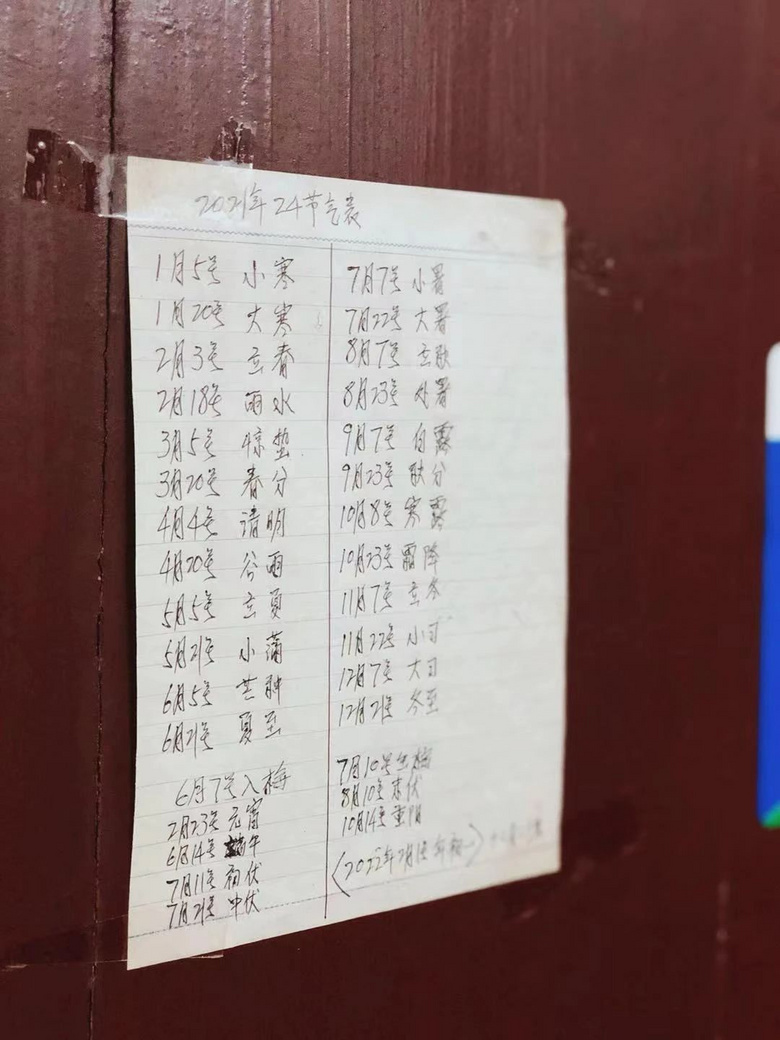 2021年24节气表
1月5号 小寒
1月20号 大寒
2月3号 立春
2月18号 雨水
3月5号 惊蛰
3月20号 春分
4月4号 清明
4月20号 谷雨
5月5号 立夏
5月21号 小满
6月5号 芒种
6月21号 夏至
6月7号入梅
2月23号 元宵
6月14号 端午
7月11号 初伏
7月21号 中伏
7月7号 小署
7月22号 大署
8月7号 立秋
8月23号 处署
9月7号 白露
9月23号 秋分
10月8号 寒露
10月23号 霜降
11月7号 立冬
11月22号 小彐
12月7号 大彐
12月21号 冬至
7月10号出梅
8月10号末伏
10月14号重阳
(2022年2月1号年初一)